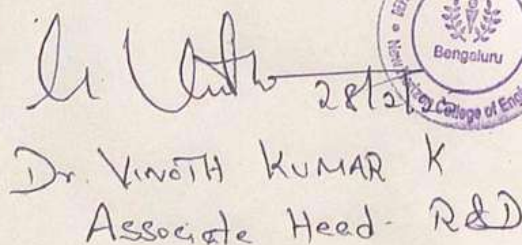 Bengaluru
College of Engi
28/2/
Dr. VINOTH KUMAR K
Associate Head - R&D